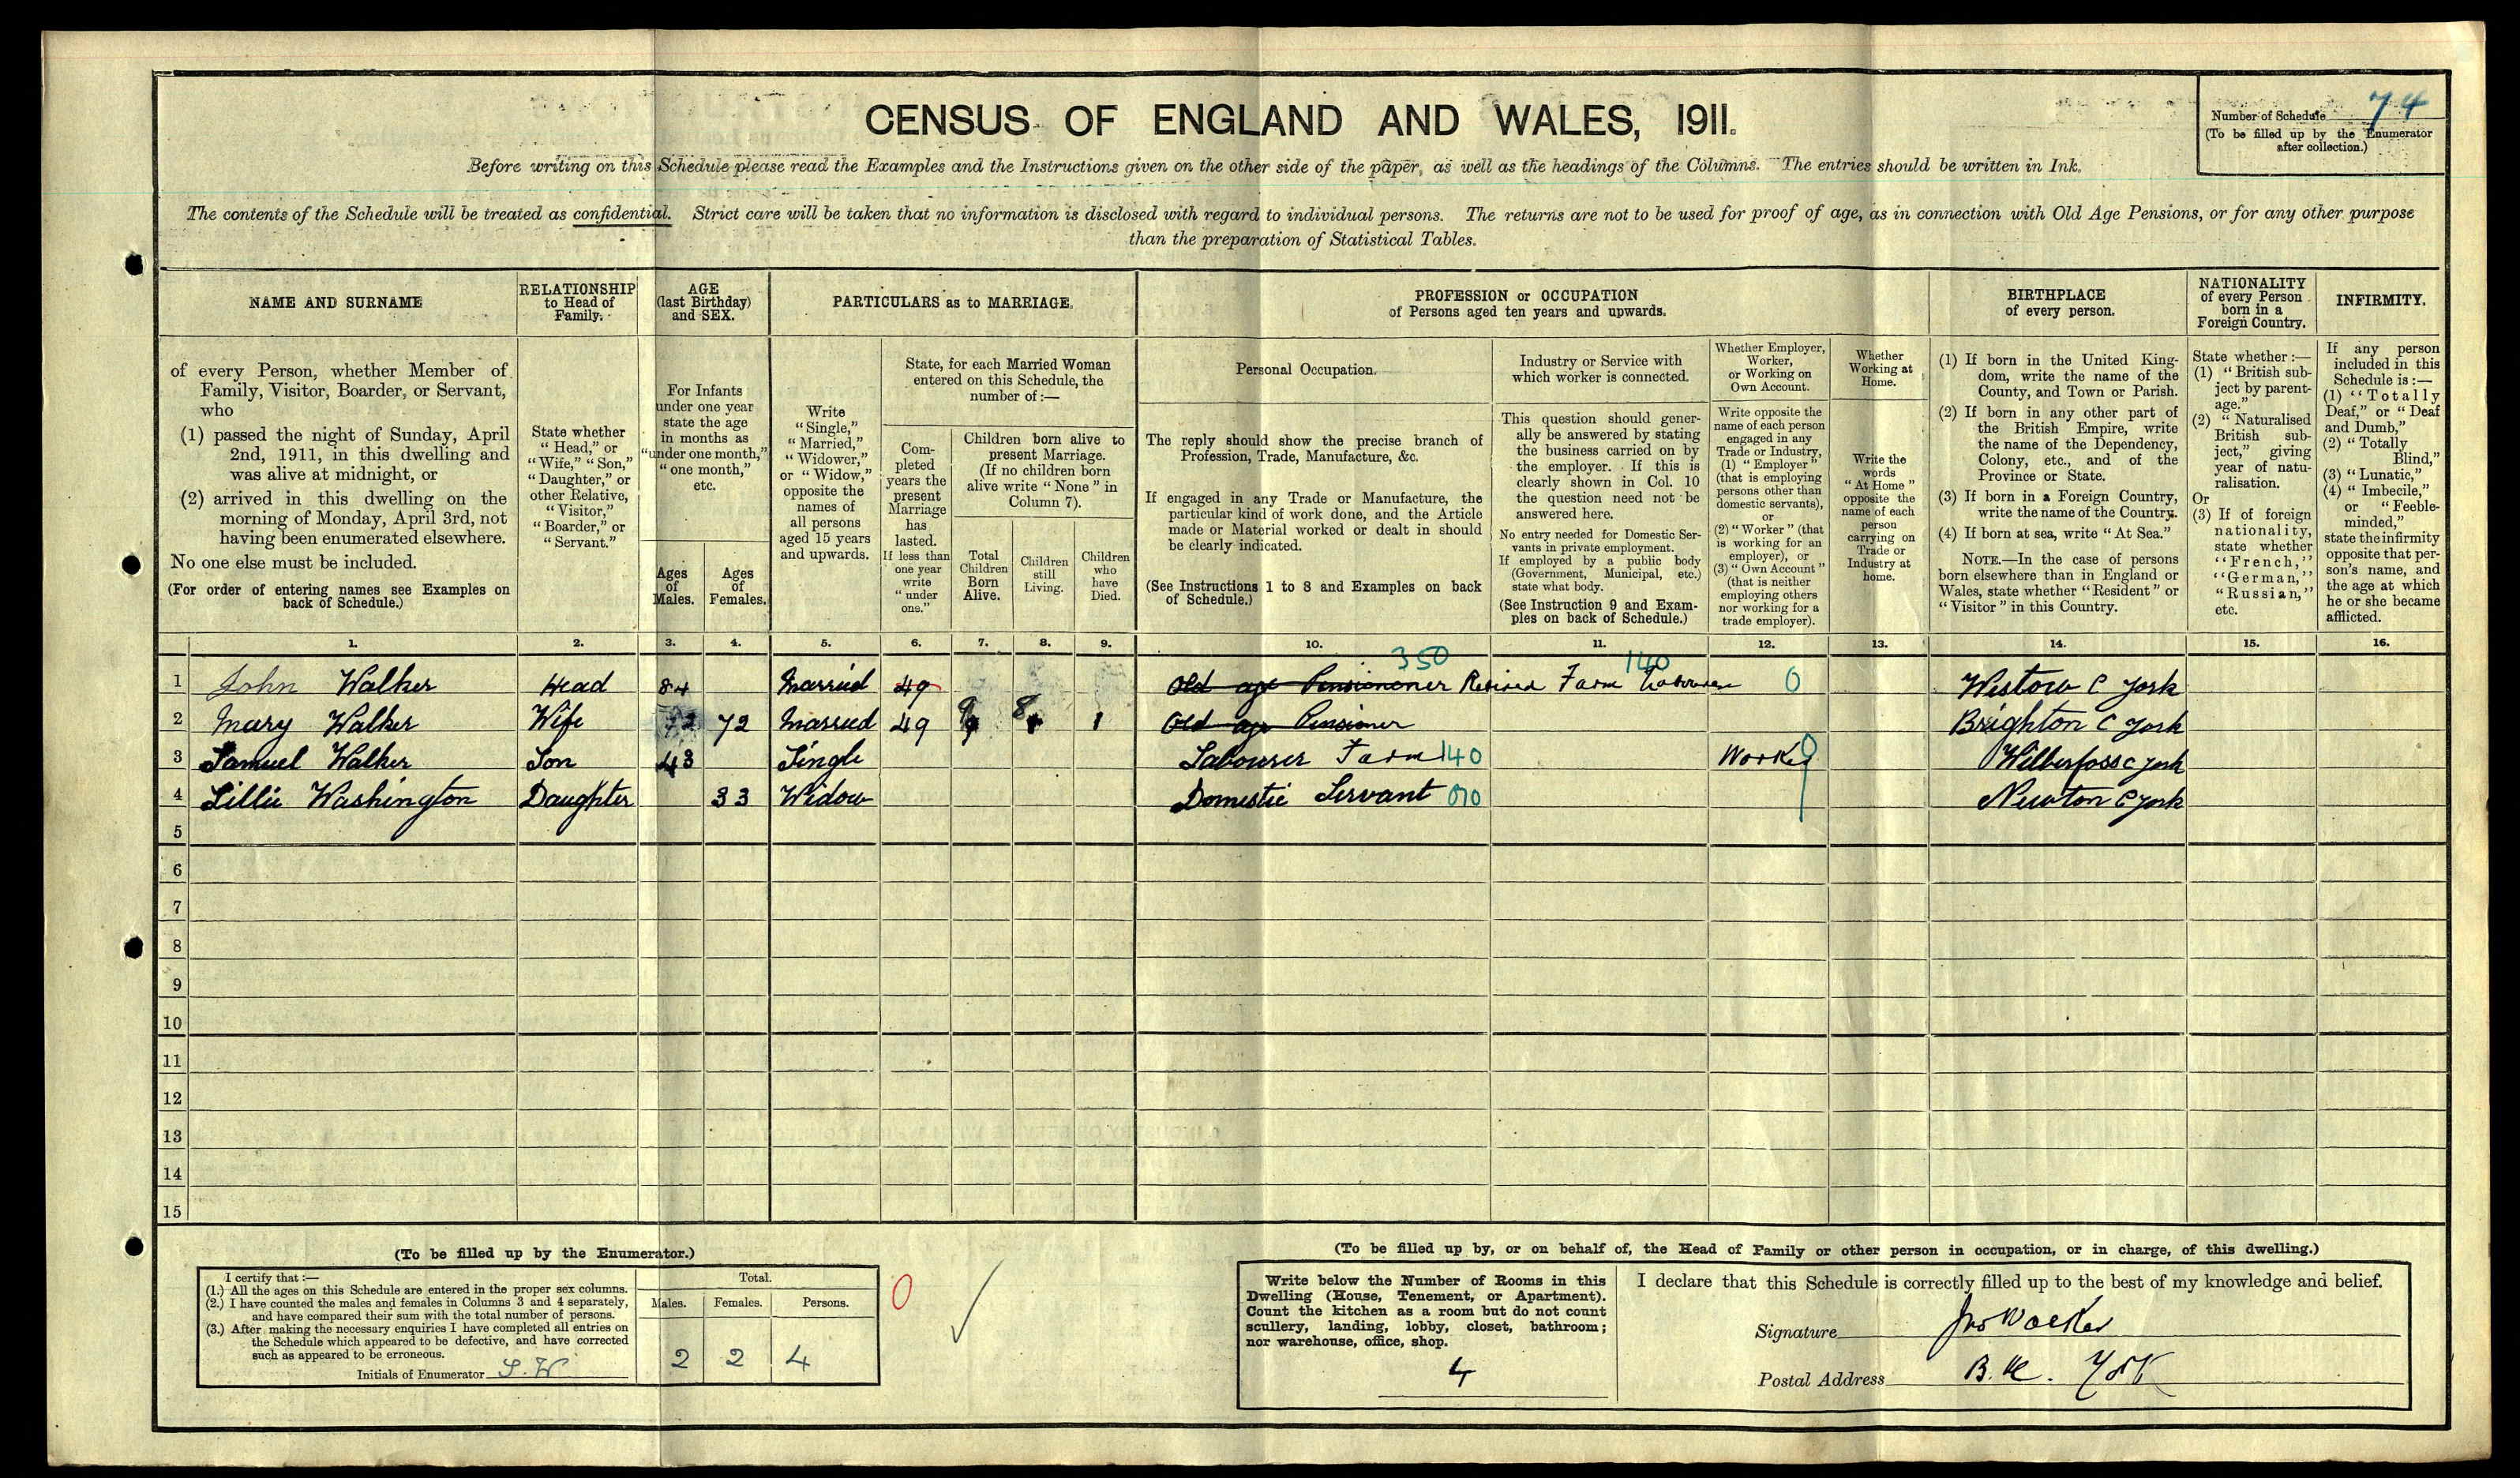 CENSUS OF ENGLAND AND WALES, 1911.
Number of Schedule 74
(To be filled up by the Enumerator
after collection.)
Before writing on this Schedule please read the Examples and the Instructions given on the other side of the paper, as well as the headings of the Columns. The entries should be written in Ink.
The contents of the Schedule will be treated as confidential. Strict care will be taken that no information is disclosed with regard to individual persons. The returns are not to be used for proof of age, as in connection with Old Age Pensions, or for any other purpose
than the preparation of Statistical Tables.
NAME AND SURNAME
of every Person, whether Member of
Family, Visitor, Boarder, or Servant,
who
(1) passed the night of Sunday, April
2nd, 1911, in this dwelling and
was alive at midnight, or
(2) arrived in this dwelling on the
morning of Monday, April 3rd, not
having been enumerated elsewhere.
No one else must be included.
(For order of entering names see Examples on
back of Schedule.)
RELATIONSHIP
to Head of
Family.
State whether
"Head," or
"Wife," "Son,"
"Daughter," or
other Relative,
"Visitor,"
"Boarder," or
"Servant."
AGE
(last Birthday)
and SEX.
For Infants
under one year
state the age
in months as
"under one month,"
"one month,"
etc.
Ages
of
Males.
Ages
of
Females.
PARTICULARS as to MARRIAGE.
Write
"Single,"
"Married,"
"Widower,"
or "Widow,"
opposite the
names of
all persons
aged 15 years
and upwards.
State, for each Married Woman
entered on this Schedule, the
number of :—
Com-
pleted
years the
present
Marriage
has
lasted.
If less than
one year
write
"under
one."
Children born alive to
present Marriage.
(If no children born
alive write "None" in
Column 7).
Total
Children
Born
Alive.
Children
still
Living.
Children
who
have
Died.
PROFESSION or OCCUPATION
of Persons aged ten years and upwards.
Personal Occupation.
The reply should show the precise branch of
Profession, Trade, Manufacture, &c.
If engaged in any Trade or Manufacture, the
particular kind of work done, and the Article
made or Material worked or dealt in should
be clearly indicated.
(See Instructions 1 to 8 and Examples on back
of Schedule.)
Industry or Service with
which worker is connected.
This question should gener-
ally be answered by stating
the business carried on by
the employer. If this is
clearly shown in Col. 10
the question need not be
answered here.
No entry needed for Domestic Ser-
vants in private employment.
If employed by a public body
(Government, Municipal, etc.)
state what body.
(See Instruction 9 and Exam-
ples on back of Schedule.)
Whether Employer,
Worker,
or Working on
Own Account.
Write opposite the
name of each person
engaged in any
Trade or Industry,
(1) "Employer"
(that is employing
persons other than
domestic servants),
or
(2) "Worker" (that
is working for an
employer), or
(3) "Own Account"
(that is neither
employing others
nor working for a
trade employer).
Whether
Working at
Home.
Write the
words
"At Home"
opposite the
name of each
person
carrying on
Trade or
Industry at
home.
BIRTHPLACE
of every person.
(1) If born in the United King-
dom, write the name of the
County, and Town or Parish.
(2) If born in any other part of
the British Empire, write
the name of the Dependency,
Colony, etc., and of the
Province or State.
(3) If born in a Foreign Country,
write the name of the Country.
(4) If born at sea, write "At Sea."
NOTE.—In the case of persons
born elsewhere than in England or
Wales, state whether "Resident" or
"Visitor" in this Country.
NATIONALITY
of every Person
born in a
Foreign Country.
State whether :—
(1) "British sub-
ject by parent-
age."
(2) "Naturalised
British sub-
ject," giving
year of natu-
ralisation.
Or
(3) If of foreign
nationality,
state whether
"French,"
"German,"
"Russian,"
etc.
INFIRMITY.
If any person
included in this
Schedule is :—
(1) "Totally
Deaf," or "Deaf
and Dumb,"
(2) "Totally
Blind,"
(3) "Lunatic,"
(4) "Imbecile,"
or "Feeble-
minded,"
state the infirmity
opposite that per-
son's name, and
the age at which
he or she became
afflicted.
1. 2. 3. 4. 5. 6. 7. 8. 9. 10. 11. 12. 13. 14. 15. 16.
350 140
1 John Walker Head 84 Married 49 Old age Pensionener Retired Farm Labourer 0 Westow C York
2 Mary Walker Wife 72 72 Married 49 9 8 1 Old age Pensioner Brighton C York
3 Samuel Walker Son 43 Single Labourer Farm 140 Worker 0 Wilberfoss C York
4 Lillie Washington Daughter 33 Widow Domestic Servant 010 Newton C York
5
6
7
8
9
10
11
12
13
14
15
(To be filled up by the Enumerator.)
I certify that :—
(1.) All the ages on this Schedule are entered in the proper sex columns.
(2.) I have counted the males and females in Columns 3 and 4 separately,
and have compared their sum with the total number of persons.
(3.) After making the necessary enquiries I have completed all entries on
the Schedule which appeared to be defective, and have corrected
such as appeared to be erroneous.
Initials of Enumerator S.W
Total.
Males. Females. Persons.
2 2 4
0
(To be filled up by, or on behalf of, the Head of Family or other person in occupation, or in charge, of this dwelling.)
Write below the Number of Rooms in this
Dwelling (House, Tenement, or Apartment).
Count the kitchen as a room but do not count
scullery, landing, lobby, closet, bathroom;
nor warehouse, office, shop.
4
I declare that this Schedule is correctly filled up to the best of my knowledge and belief.
Signature Jno Walker
Postal Address York